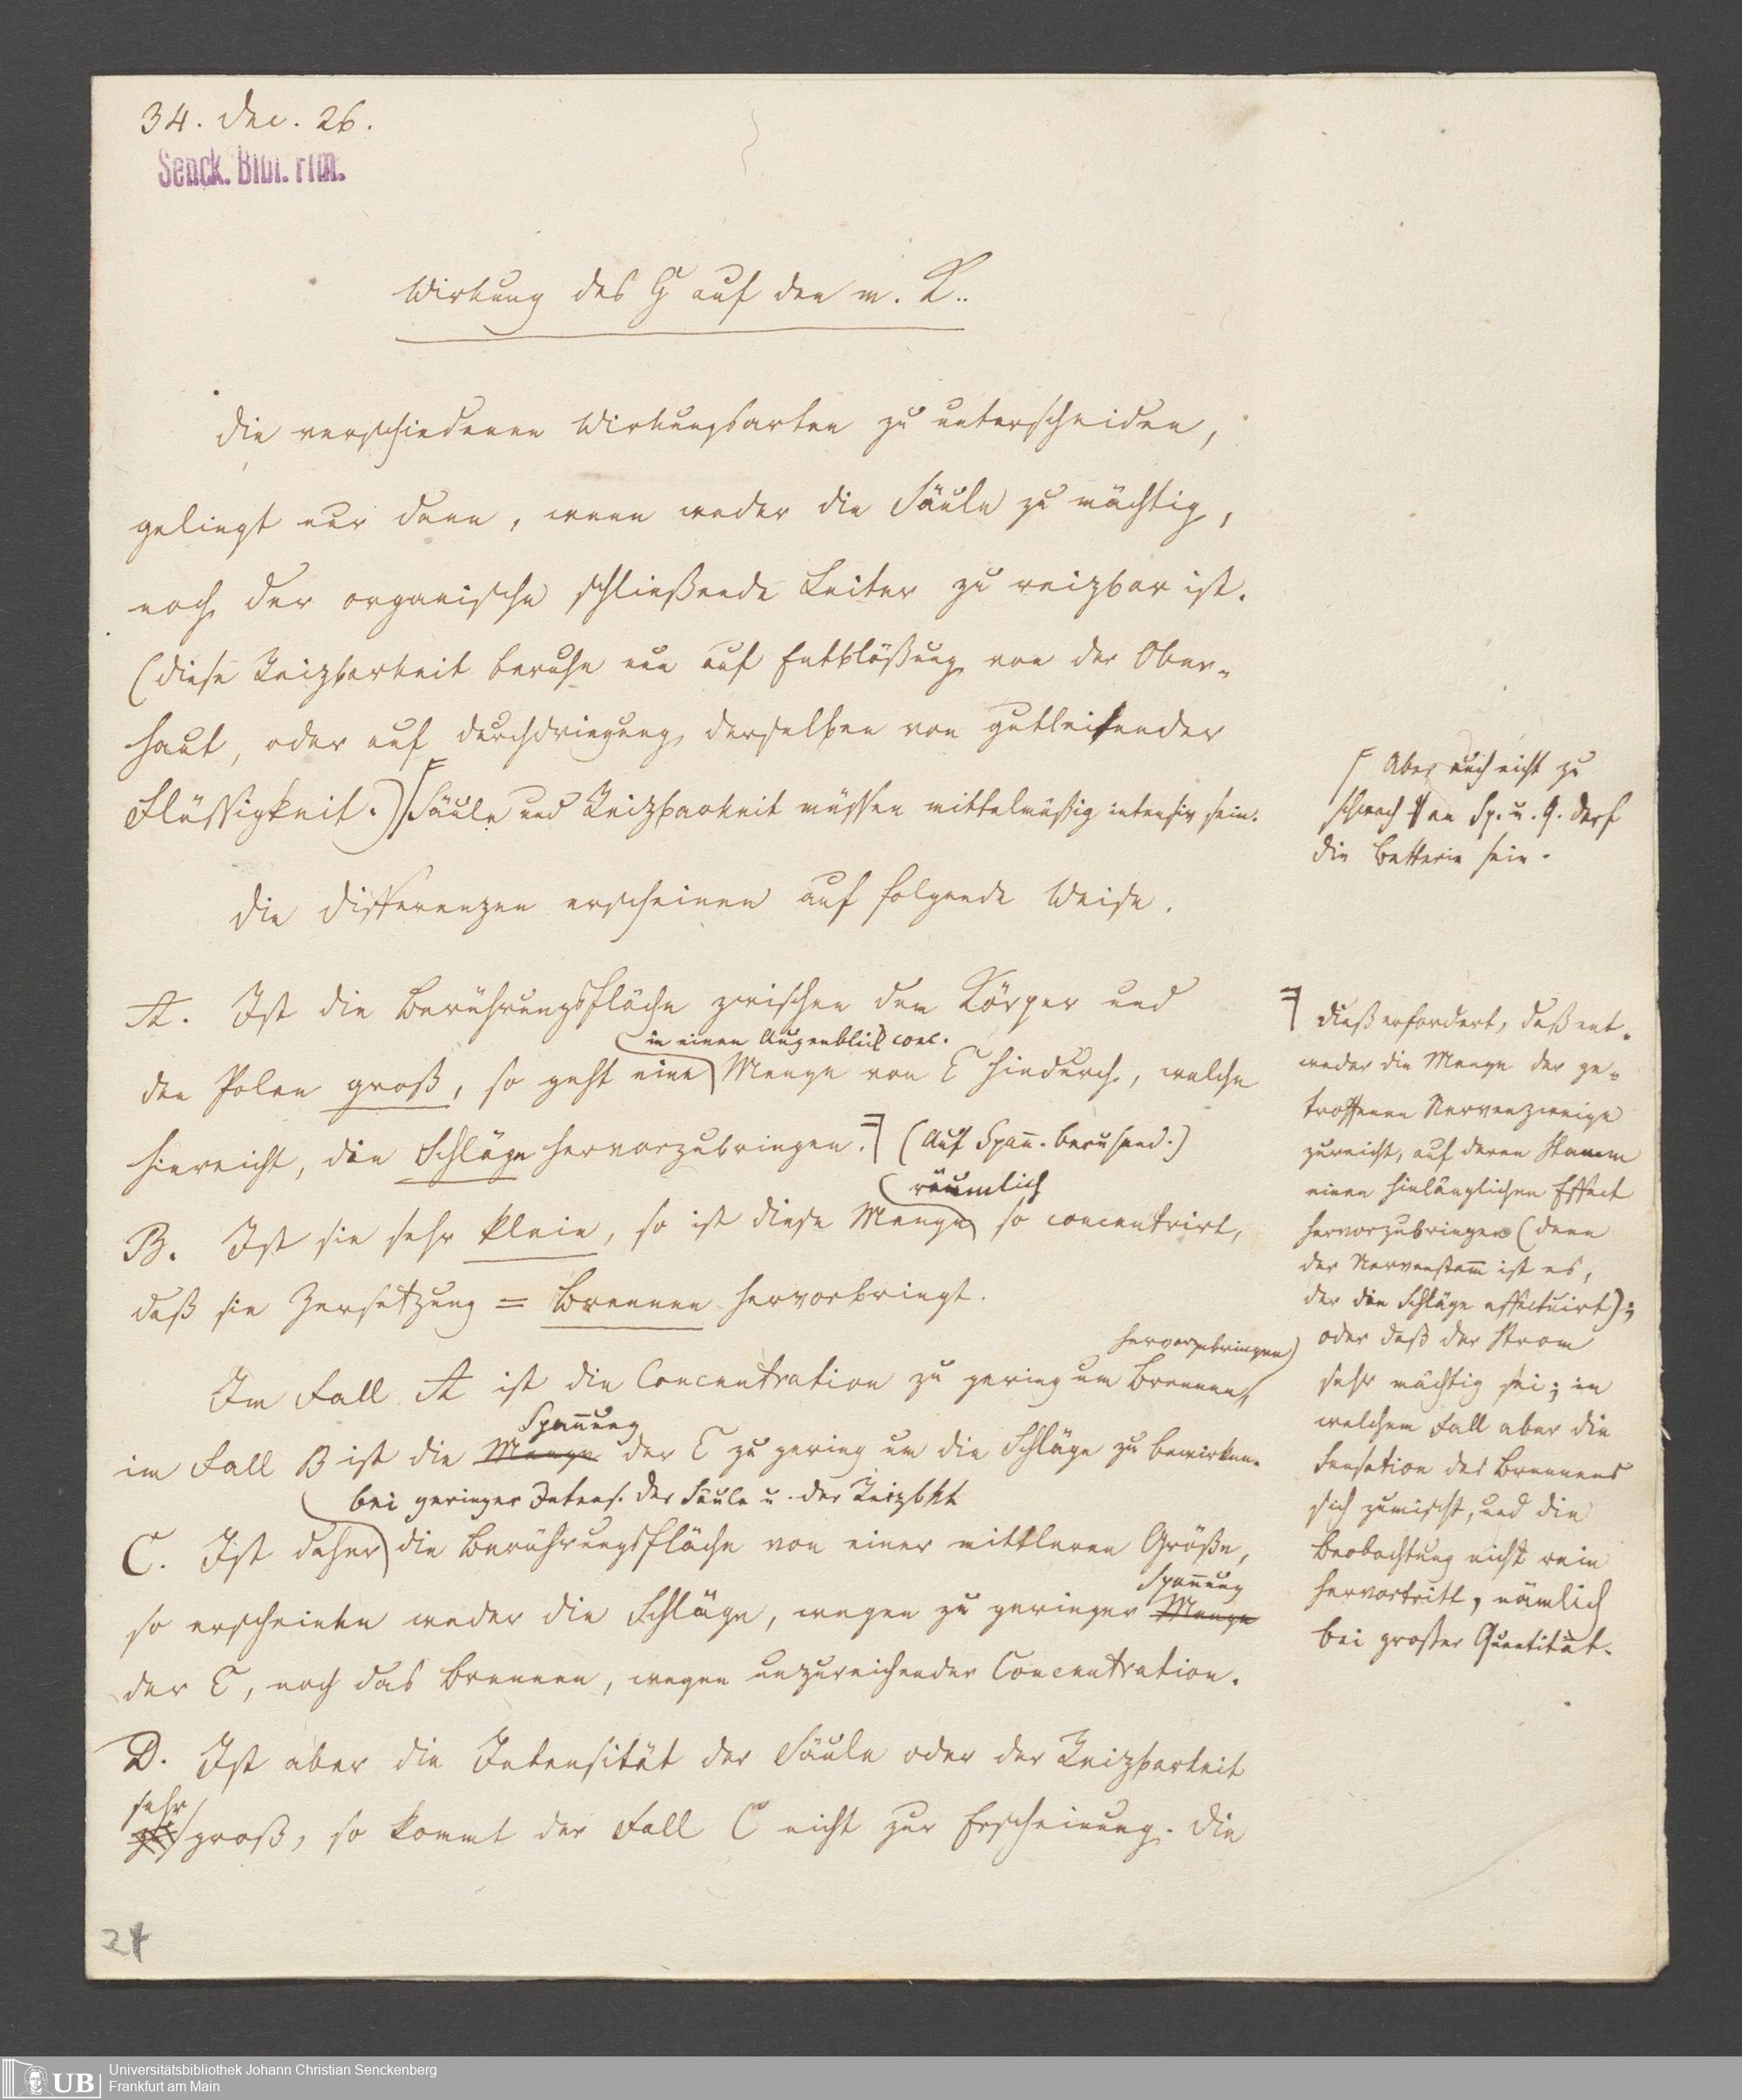 34. Dec. 26.
Senck. Bibl. Ffm.
Wirkung des G auf den m. K..
Die verschiedenen Wirkungsarten zu unterscheiden,
gelingt nur dann, wenn weder die Säule zu mächtig,
noch der organische schließende Leiter zu reizbar ist.
(diese Reizbarkeit beruhe nun auf Entblößung von der Ober-
haut, oder auf Durchdringung derselben von gutleitender
Flüssigkeit.) Säule und Reizbarkeit müssen mittelmäßig intensiv sein.
Die Differenzen erscheinen auf folgende Weise.
A. Ist die Berührungsfläche zwischen dem Körper und
in einen Augenblick conc.
den Polen groß, so geht eine Menge von E hindurch, welche
hinreicht, die Schläge hervorzubringen. (Auf Spann. beruhend.)
räumlich
B. Ist sie sehr klein, so ist diese Menge so concentrirt,
daß sie Zersetzung = Brennen hervorbringt.
hervorzubringen
Im Fall A ist die Concentration zu gering um Brennen,
Spannung
im Fall B ist die Menge der E zu gering um die Schläge zu bewirken.
bei geringer Intens. der Säule u. der Reizbkt
C. Ist daher die Berührungsfläche von einer mittleren Größe,
Spannung
so erscheinen weder die Schläge, wegen zu geringer Menge
der E, noch das Brennen, wegen unzureichender Concentration.
D. Ist aber die Intensität der Säule oder der Reizbarkeit
sehr
groß, so kommt der Fall C nicht zur Erscheinung. Die
24
Aber auch nicht zu
schwach an Sp. u. Q. darf
die Batterie sein.
Dieß erfordert, daß ent-
weder die Menge der ge-
troffenen Nervenzweige
zureicht, auf deren Stamm
einen hinlänglichen Effect
hervorzubringen (denn
der Nervenstamm ist es,
der die Schläge effectuirt);
oder daß der Strom
sehr mächtig sei; in
welchem Fall aber die
Sensation des Brennens
sich zumischt, und die
Beobachtung nicht rein
hervortritt, nämlich
bei großer Quantität.
UB Universitätsbibliothek Johann Christian Senckenberg
Frankfurt am Main